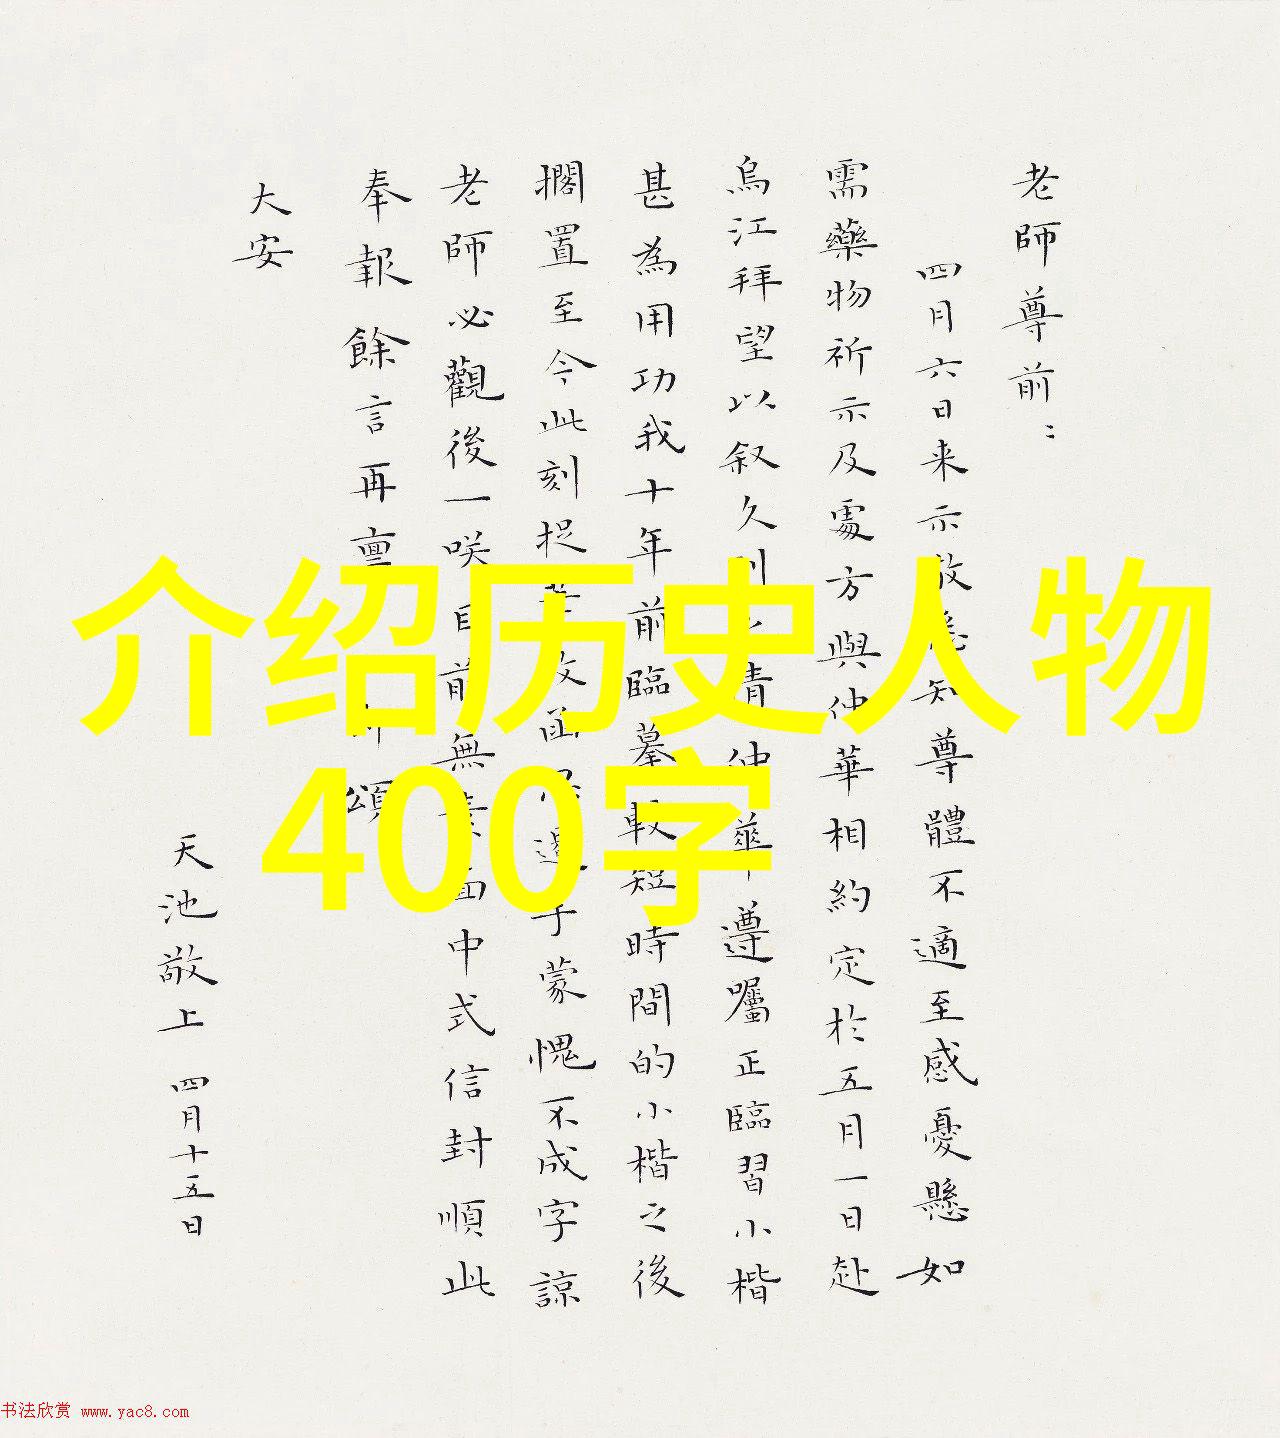 介绍历史人物
400字
老師尊前：
四月六日来示敬悉知尊體不適至感憂懸如
需藥物祈示及處方與仲華相約定於五月一日赴
烏江拜望以叙久別之情仲華遵囑正臨習小楷
甚為用功我十年前臨摹較短時間的小楷之後
擱置至今此刻捉筆函手蒙愧不成字諒
老師必觀後一咲目前無素面中式信封順此
奉報餘言再稟頌
大安
天池敬上 四月十五日
书法欣赏 www.yac8.com